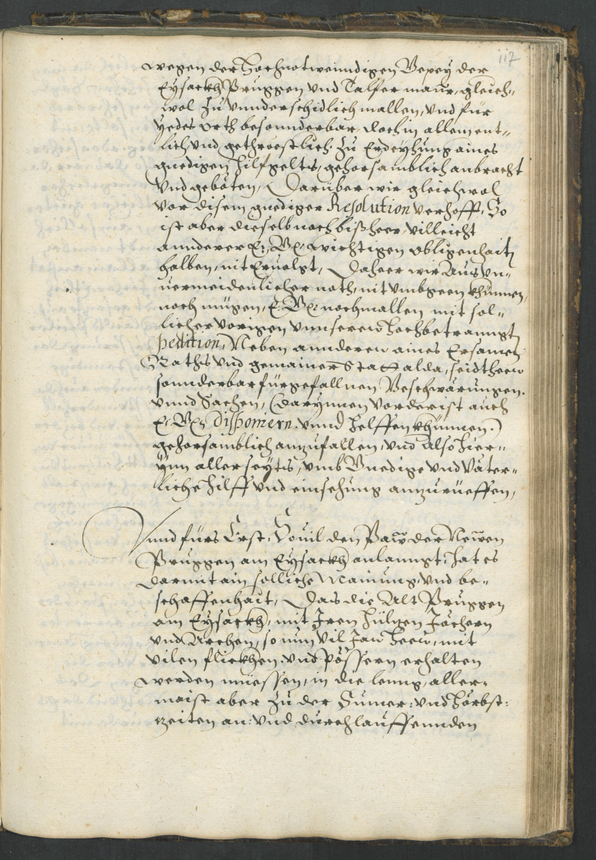 117
wegen der Hochnotwenndigen Bepey der
Eysackh Pruggen vnd Talfer maur, gleich-
wol zu vnnderschidlichmallen, vnd für
yedes orth besonnderbar, doch in allem ent-
lich vnd getröstlich zu Erdeyhung aines
gnedigen Hilfgelts, gehorsamblich anbracht
vnd gebeten, Darüber wir gleichwol
vor disem gnediger Resolution verhofft, So
ist aber dieselb noch bißheer villeicht
annderer E: Gn: wichtigen obligenhait
halben, nit Ervolgt, Daheer wir aus vn-
uermeidenlicher noth, nit vmbgeen khünnen,
noch mügen, E: Gn: nochmallen mit sol-
licher vorigen vnnseren Hochbetranngt
petition, Neben annderen aines Ersamen
Raths vnd gemainer Statt alda, seidtheer
sonnderbar fürgefallnen Beschwärungen
vnnd Sachen, (darynnen vorderist auch
E: Gn: disponiern vnnd helffen khünnen)
gehorsamblich anzufallen, vnd also hier-
ynn allerseyts, vmb Gnedige vnd Väter-
liche Hilff vnd einsehung anzurüeffen,
Vnnd fürs Erst, Souil den Paw der Newen
Pruggen am Eysackh anlanngt, hat es
darmit ain solliche Mainung vnd be-
schaffenhait, Das die Alt Pruggen
am Eysackh, mit Iren Hülzen Jöchern
vnd Archen, so nun vil Jar heer, mit
vilen flickhen vnd pössern erhalten
werden müessen, in die lenng, aller-
maist aber zu der Sumer: vnd Hörbst:
zeiten an: vnd durchlauffennden